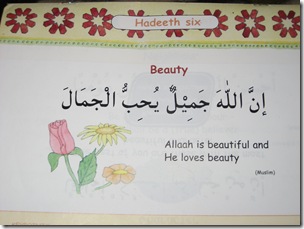 Hadeeth six
Beauty
إِنَّ اللّٰهَ جَمِيْلٌ يُحِبُّ الْجَمَالَ
Allaah is beautiful and
He loves beauty
(Muslim)